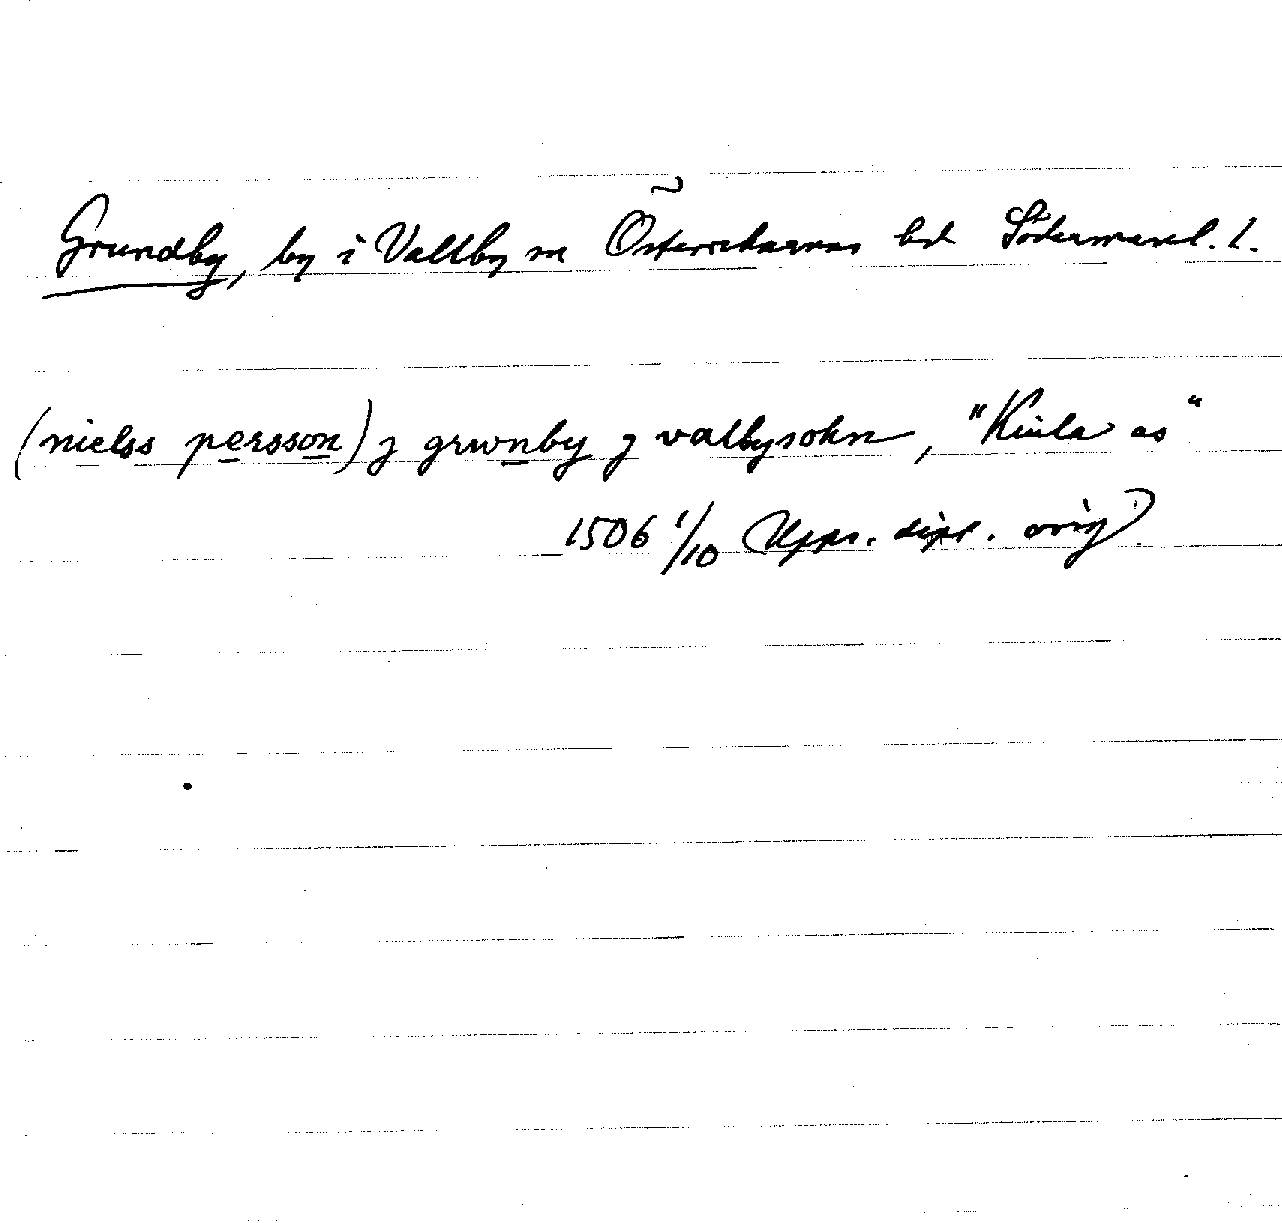 Grundby, by i Vallby sn Österrekarnes hd Södermanl. l.
(nielss persson) j grwnby j valbysokn, "Kiula as"
1506 1/10 Upps. dipl. orig